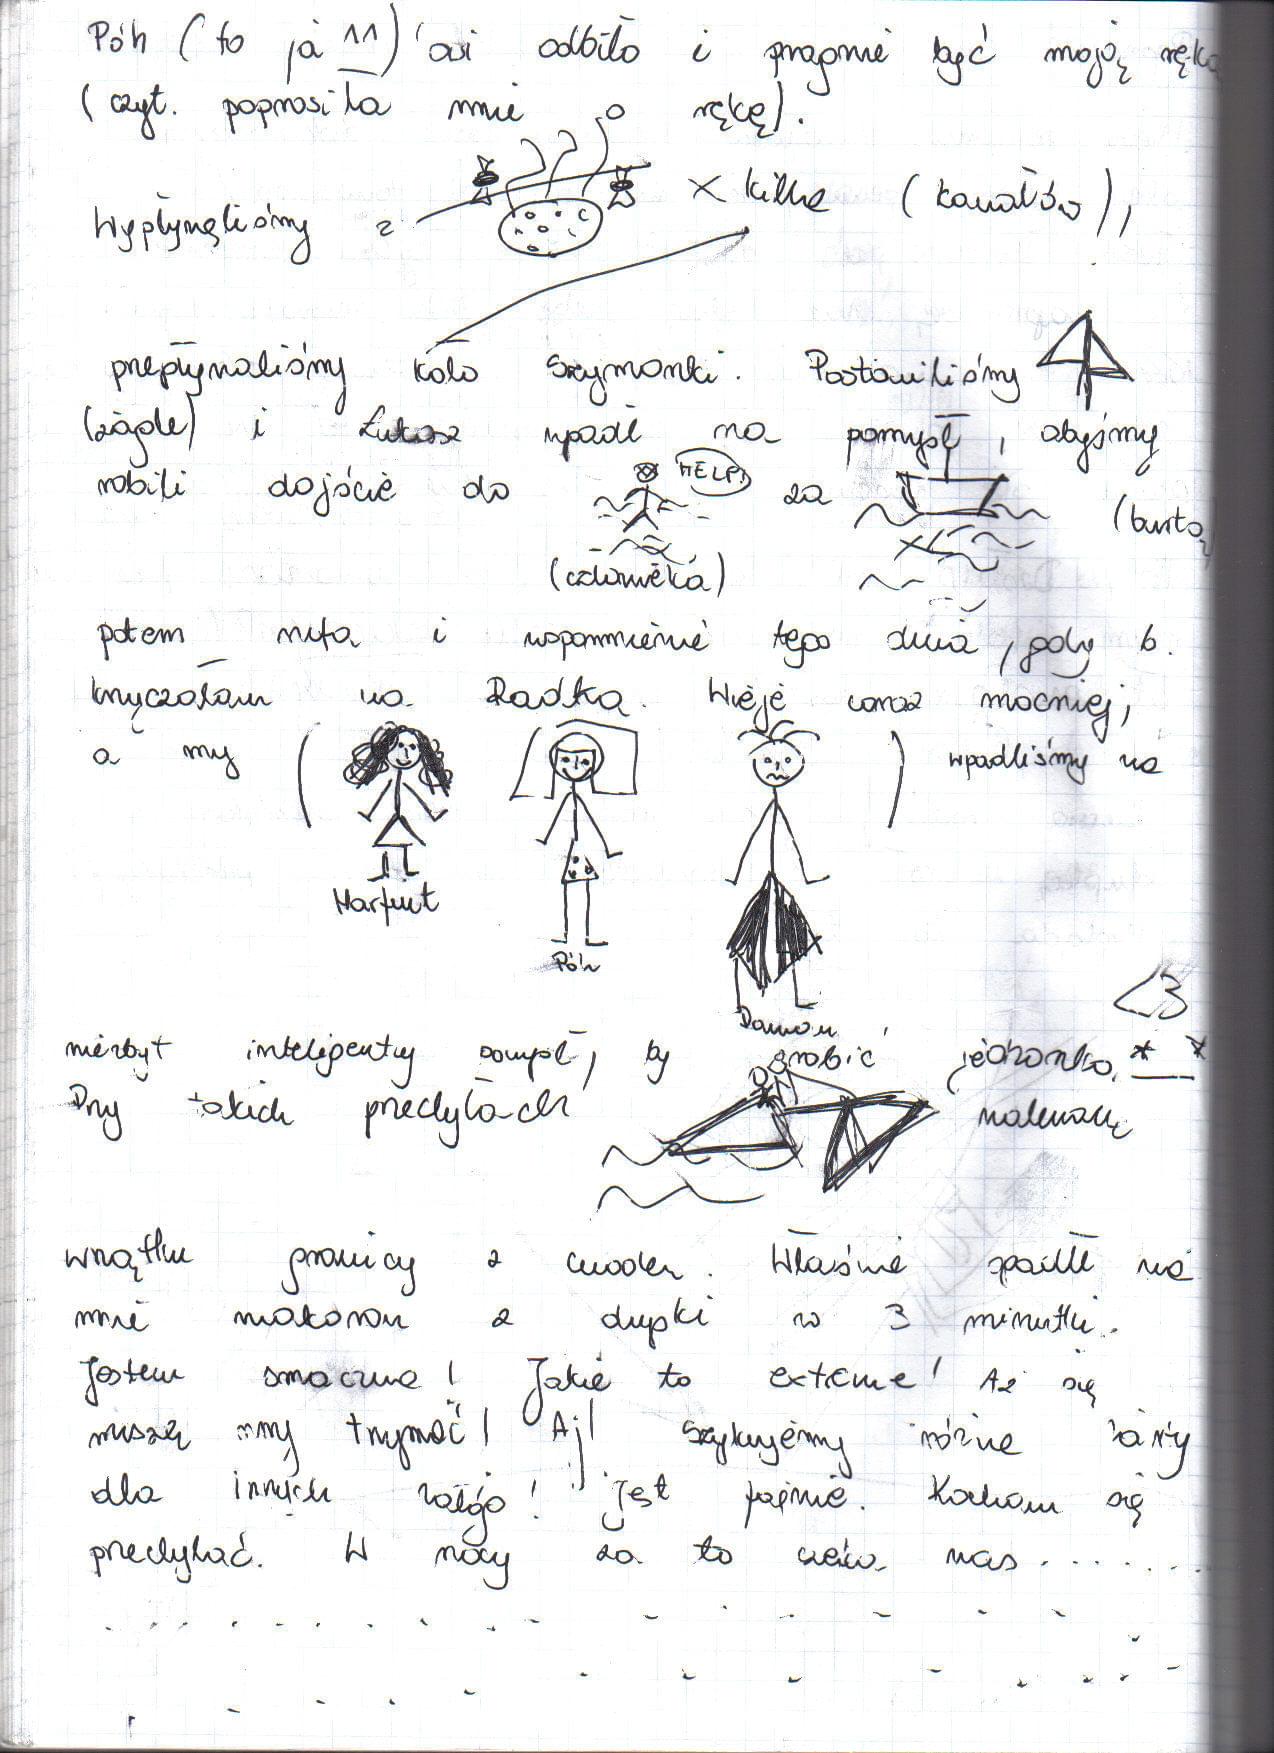 Póh (to ja ^^) 'owi odbiło i pragnie być moją ręką
(czyt. poprosiła mnie o rękę).
Wypłynęliśmy z X kilka (kanałów),
przepłynaliśmy koło Szymonki. Postawiliśmy
(żagle) i Łukasz wpadł na pomysł, abyśmy
robili dojście do HELP! za (burtą)
(człowieka)
potem nuta i wspomnienie tego dnia, gdy b.
krzyczałam na Radka. Wieje coraz mocniej,
a my ( ) wpadliśmy na
Marfut
Póh
Damian
<3
niezbyt inteligentny pomysł, by zrobić jedzonko. *__*
Przy takich przechyłach malutką
wnątku granicy z cudem. Właśnie spadł na
mnie makaron z dupki w 3 minutki.
Jestem smaczna! Jakie to extreme! Aż się
muszę trzymać! Aj! Szykujemy różne żarty
dla innych załóg! Jest fajnie. Kocham się
przechylać. W nocy za to czeka nas.......